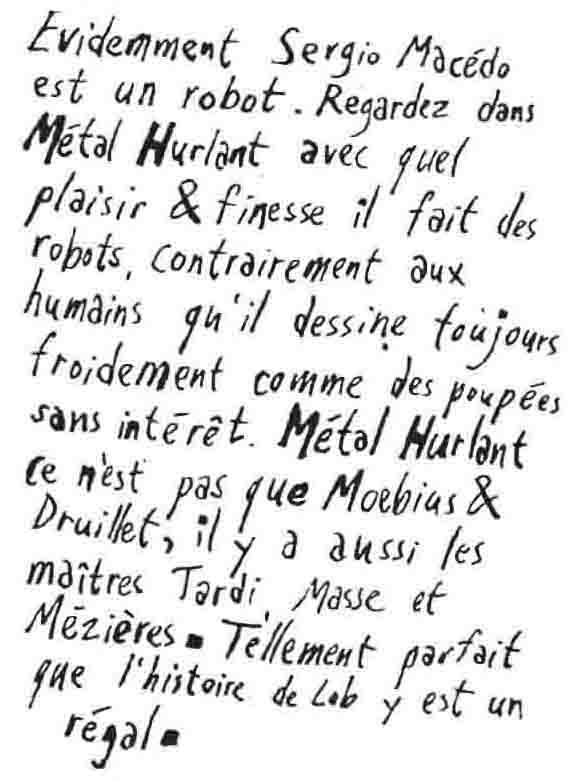 Evidemment Sergio Macédo
est un robot. Regardez dans
Métal Hurlant avec quel
plaisir & finesse il fait des
robots, contrairement aux
humains qu'il dessine toujours
froidement comme des poupées
sans intérêt. Métal Hurlant
ce n'est pas que Moebius &
Druillet; il y a aussi les
maîtres Tardi, Masse et
Mézières. Tellement parfait
que l'histoire de Lob y est un
régal.